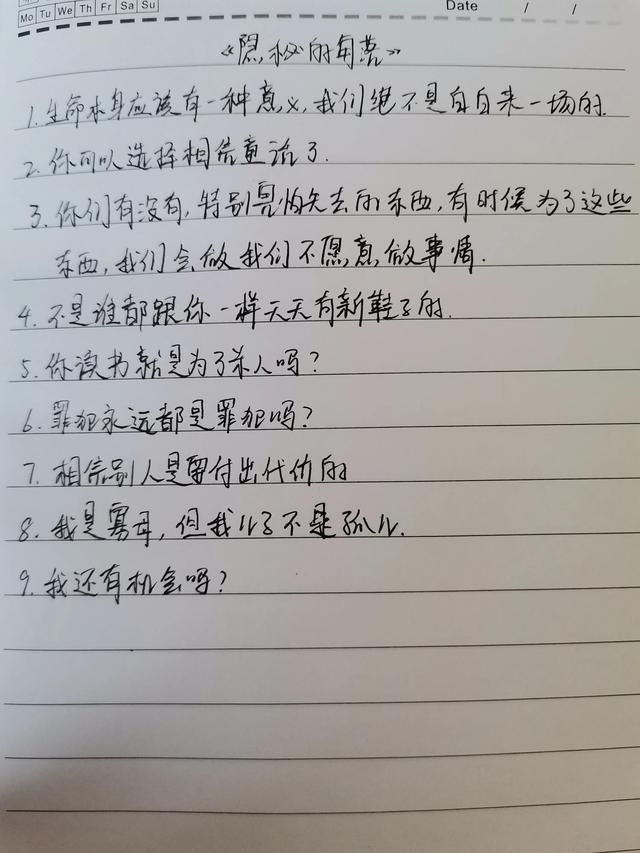 Mo Tu We Th Fr Sa Su
Date / /
《隐秘的角落》
1. 生命本身应该有一种意义,我们绝不是白白来一场的.
2. 你可以选择相信童话了.
3. 你们有没有,特别害怕失去的东西,有时候为了这些
东西,我们会做我们不愿意做事情.
4. 不是谁都跟你一样天天有新鞋子的.
5. 你读书就是为了杀人吗?
6. 罪犯永远都是罪犯吗?
7. 相信别人是要付出代价的
8. 我是寡母,但我儿子不是孤儿.
9. 我还有机会吗?